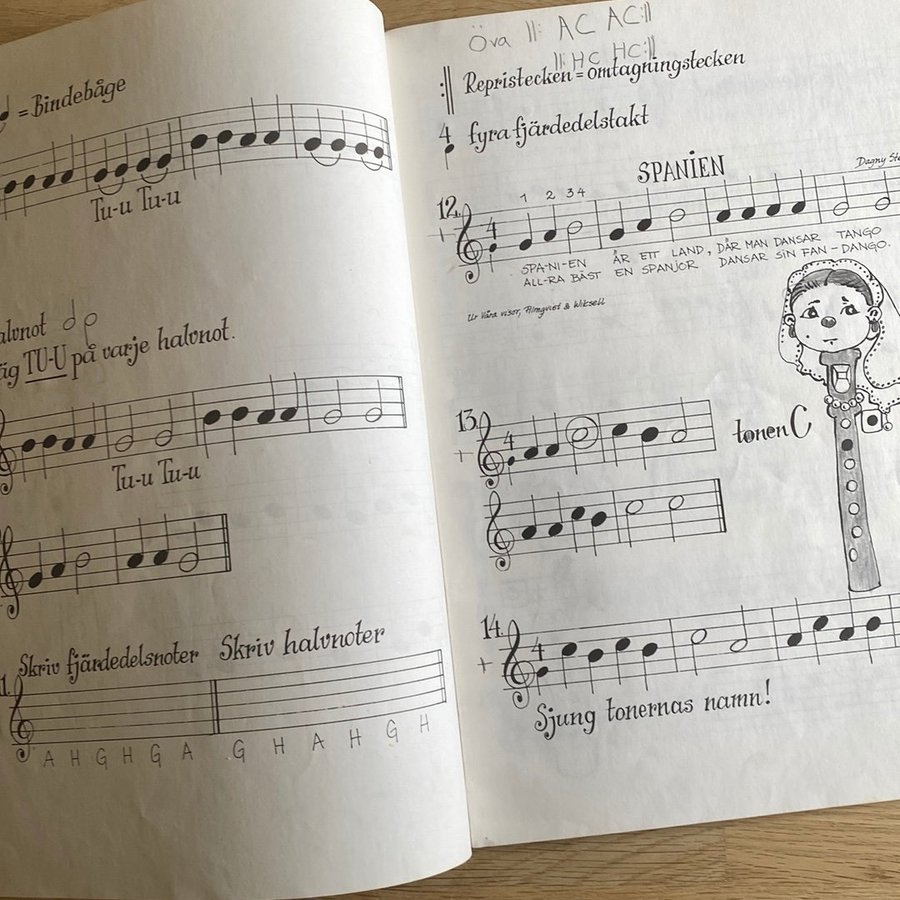 = Bindebåge
Tu-u Tu-u
TU-U på varje halvnot.
Tu-u Tu-u
Skriv fjärdedelsnoter Skriv halvnoter
A H G H G A G H A H G H
Öva ||: AC AC:||
||: HC HC:||
Repristecken = omtagningstecken
4 fyra fjärdedelstakt
SPANIEN
Dagny
12.
1 2 3 4
4
SPA-NI-EN ÄR ETT LAND, DÄR MAN DANSAR TANGO
ALL-RA BÄST EN SPANJOR DANSAR SIN FAN-DANGO.
Ur Våra visor, Almqvist & Wiksell
13.
4
tonen C
14.
4
Sjung tonernas namn!